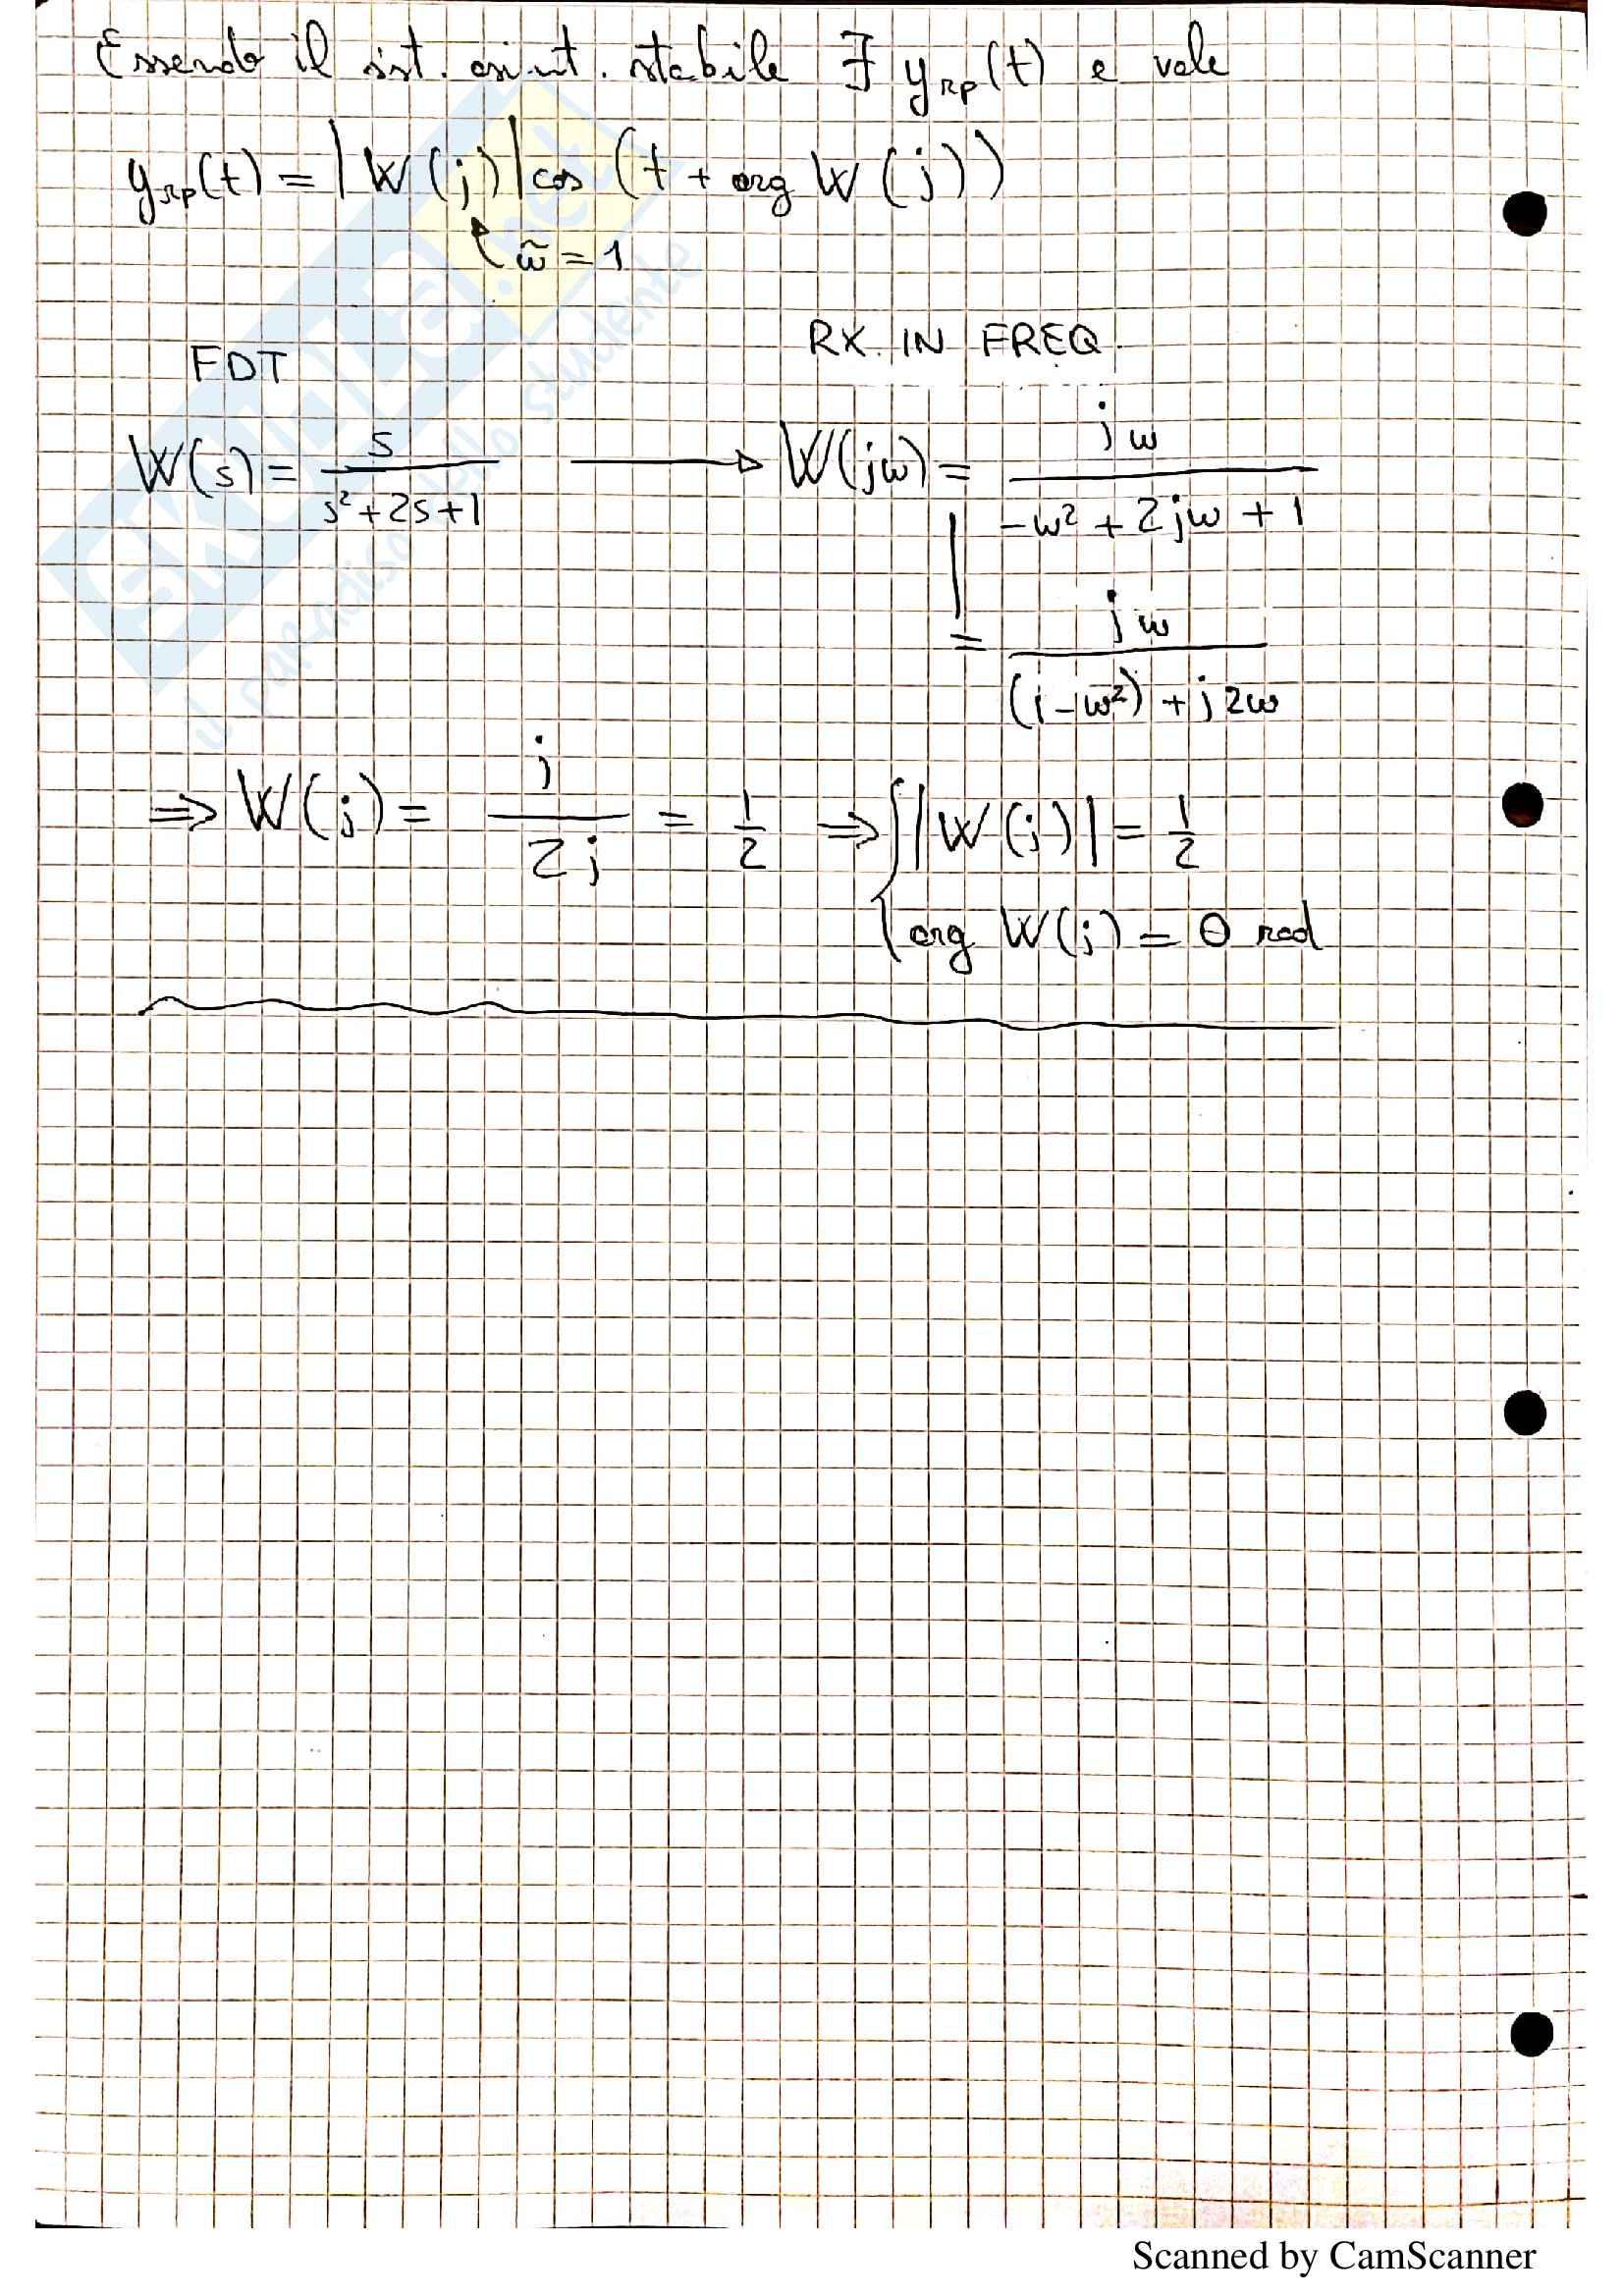 Essendo il sist. asint. stabile ∃ y_rp(t) e vale
y_rp(t) = |W(j)| cos(t + arg W(j))
ω̃ = 1
FDT
RX. IN FREQ.
W(s) = s / (s² + 2s + 1) → W(jω) = jω / (-ω² + 2jω + 1)
= jω / ((1 - ω²) + j2ω)
⇒ W(j) = j / 2j = 1/2 ⇒ { |W(j)| = 1/2
arg W(j) = 0 rad
SKUOLA.net
il paradiso dello studente
Scanned by CamScanner